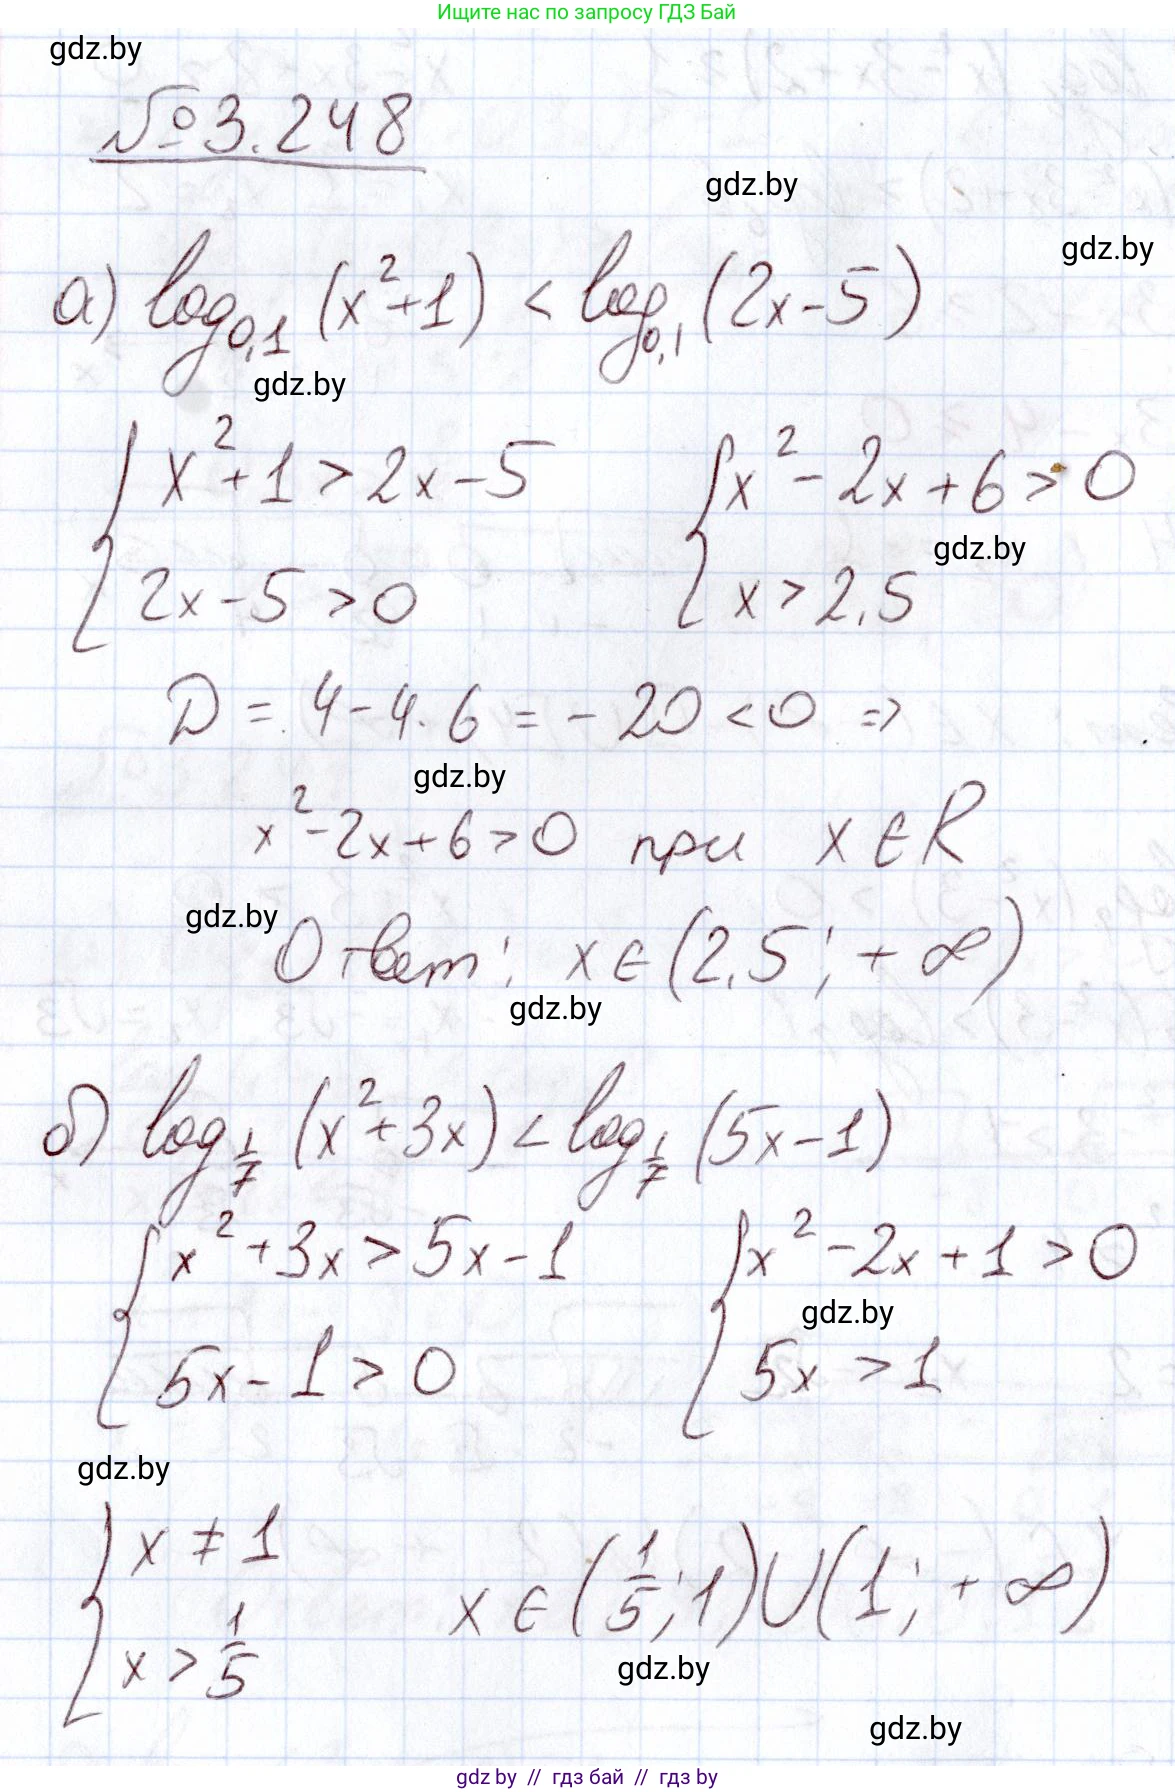 Ищите нас по запросу ГДЗ Бай
gdz.by
№3.248
gdz.by
gdz.by
а) log_{0,1} (x²+1) < log_{0,1} (2x-5)
gdz.by
{ x²+1 > 2x-5 { x²-2x+6 > 0
gdz.by
2x-5 > 0 x > 2,5
D = 4-4·6 = -20 < 0 ⇒
gdz.by
x²-2x+6 > 0 при x ∈ R
gdz.by
Ответ: x ∈ (2,5; +∞)
gdz.by
б) log_{1/7} (x²+3x) < log_{1/7} (5x-1)
{ x²+3x > 5x-1 { x²-2x+1 > 0
gdz.by
5x-1 > 0 5x > 1
gdz.by
{ x ≠ 1 x ∈ (1/5; 1) ∪ (1; +∞)
x > 1/5
gdz.by
gdz.by
gdz.by // гдз бай // гдз by